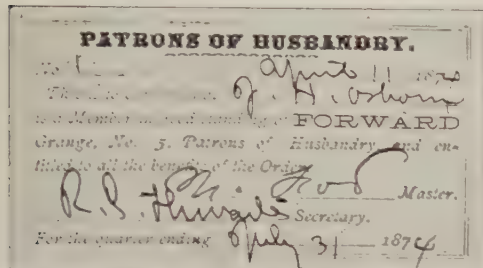 PATRONS OF HUSBANDRY.
No. 1 April 11 1874
J. H. Osborn
is a Member in good standing of FORWARD
Grange, No. 5, Patrons of Husbandry, and en-
titled to all the benefits of the Order.
Master.
R. S. Secretary.
For the quarter ending July 31 1874